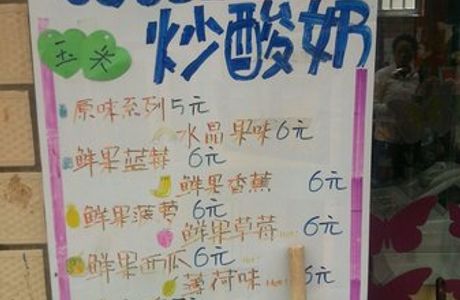 炒酸奶
玉米
原味系列5元
水晶果味6元
鲜果蓝莓 6元
鲜果香蕉 6元
鲜果菠萝 6元
鲜果草莓 6元
鲜果西瓜 6元
薄荷味 6元